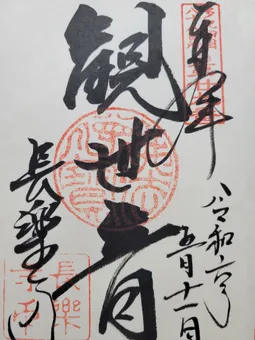 奉拝
令和六年
五月十一日
観世音
長楽寺